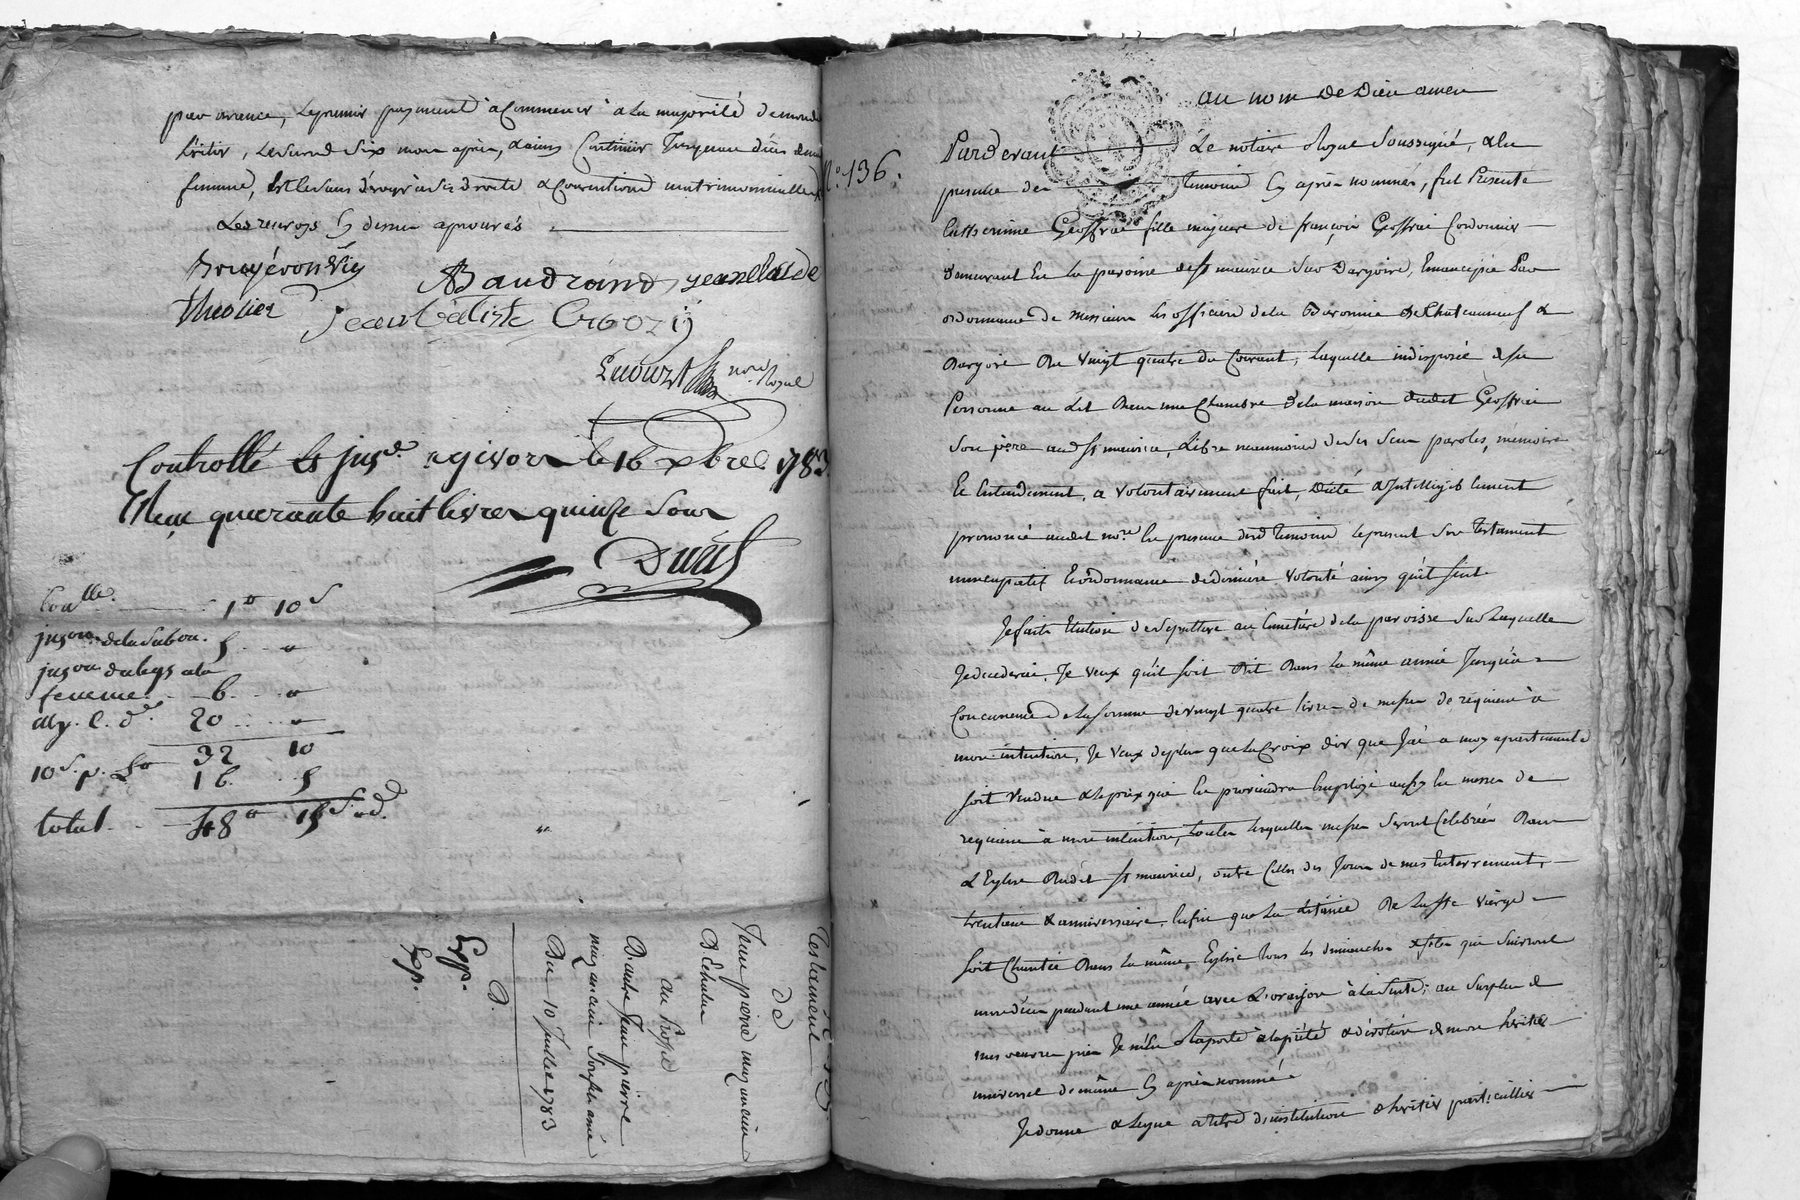 par avance, le premier payement à Commencer à la majorité de mond.
héritier, le second six mois après, & ainsi Continuer Jusques au décès de ma
femme, Et le sans déroger à ses droits & Conventions matrimonialles
Les renvoys cy dessus aprouvés
Bruyéron Vig
Baudrand jean
Theolier
Jean Batiste Crozi
nore Royal
Controllé & jnse. a givors le 16 xbre. 1783
Reçu quarante huit livres quinze Sous
Contlle. 1 10 s
jnson. de la Subon. 5 "
jnson du legs à la
femme. 6. "
20 "
32 10
10 s. p. 16. 5
total. 48 15 s. d.
Testament
de
Jean pierre mazancieu
D'Echalas
au Profit
D'autre Jean pierre
mazancieu Son fils ainé
Du 10 Juillet 1783
D.
Exp.
Exp.
N.º 136.
au nom de Dieu amen
Pardevant Le notaire Royal Soussigné, & En
presence des temoins cy après nommés, fut Présente
Catherine Geoffrai fille majeure de françois Geoffrai Cordonnier
demeurant En la paroisse de St maurice Sur Dargoire, Emancipée Par
ordonnance de messieurs les officiers de la Baronnie de Chateauneuf &
Dargoire du Vingt quatre du Courant, laquelle indisposée de sa
Personne au Lit Dans une Chambre de la maison dudit Geoffrai
Son père aud. St maurice, Libre neanmoins de ses Sens paroles, mémoire
Et Entendement, a volontairement fait, Dicté & Intelligiblement
prononcé audit nore. En presence desd. temoins le present Son Testament
nuncupatif Et ordonnance de derniere Volonté ainsy qu'il suit
Je fais Election de Sepulture au Cimetière de la paroisse Sur Laquelle
Je decederai, Je veux qu'il soit Dit Dans la même année Jusqu'à
Concurrence de la somme de vingt quatre livres de messes de requiem à
mon intention, Je Veux de plus que la Croix d'or que J'ai a moy apartenante
soit Vendue & le prix qui En proviendra Employé aussy En messes de
requiem à mon intention, toutes lesquelles messes Seront Celebrées Dans
L'Eglise Dudit St maurice, outre Celles des Jours de mes Enterrement,
trentaine & anniversaire, Enfin que la Litanie De la Ste Vierge
soit Chantée Dans la même Eglise Tous les dimanches & fetes qui Suivront
mon décès pendant une année avec L'oraison à la Suite; au Surplus de
mes œuvres pies Je m'En raporte à la piété & dévotion de mon heritier
universel de même cy après nommé
Je donne & Legue a titre d'institution & heritier particullier